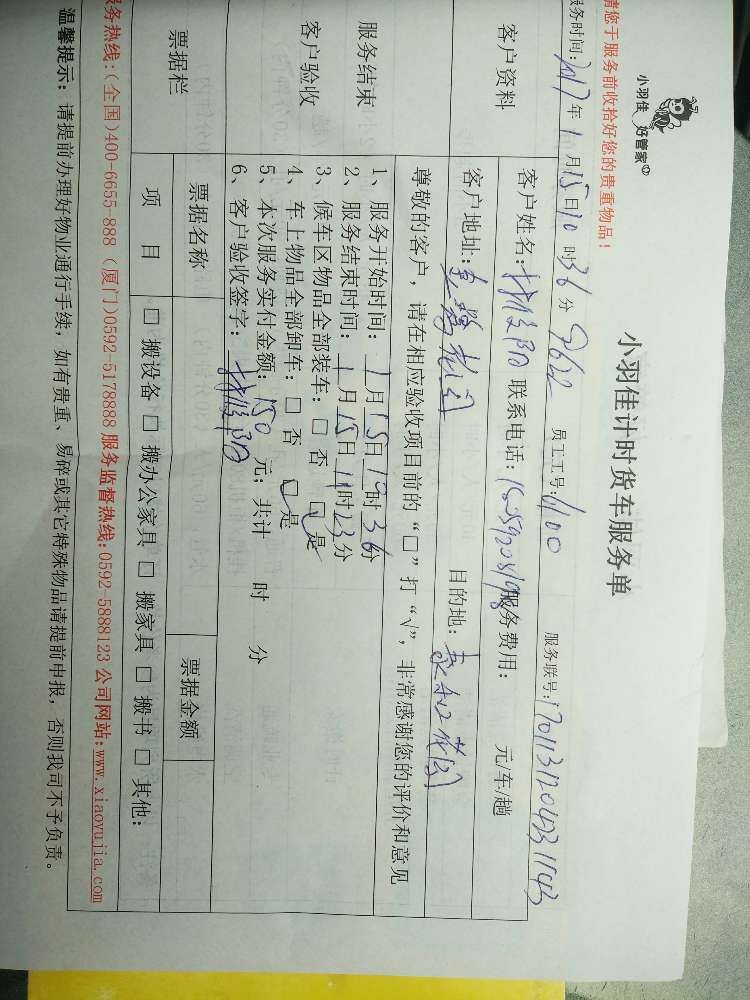 小羽佳 好管家
小羽佳计时货车服务单
请您于服务前收拾好您的贵重物品！
服务时间：2017年1月15日10时36分 员工工号：6100 服务联号：
客户资料
客户姓名： 联系电话： 服务费用： 元/车/趟
客户地址： 目的地：
尊敬的客户，请在相应验收项目前的“□”打“√”，非常感谢您的评价和意见
服务结束
客户验收
1、服务开始时间：1月15日10时36分
2、服务结束时间：1月15日11时23分
3、候车区物品全部装车：□ 否 □ 是
4、车上物品全部卸车：□ 否 □ 是
5、本次服务实付金额：150元；共计 时 分
6、客户验收签字：
票据栏
票据名称 票据金额
项 目 □ 搬设备 □ 搬办公家具 □ 搬家具 □ 搬书 □ 其他：
服务热线：(全国)400-6655-888 (厦门)0592-5178888 服务监督热线:0592-5888123 公司网站:www.xiaoyujia.com
温馨提示：请提前办理好物业通行手续，如有贵重、易碎或其它特殊物品请提前申报，否则我司不予负责。